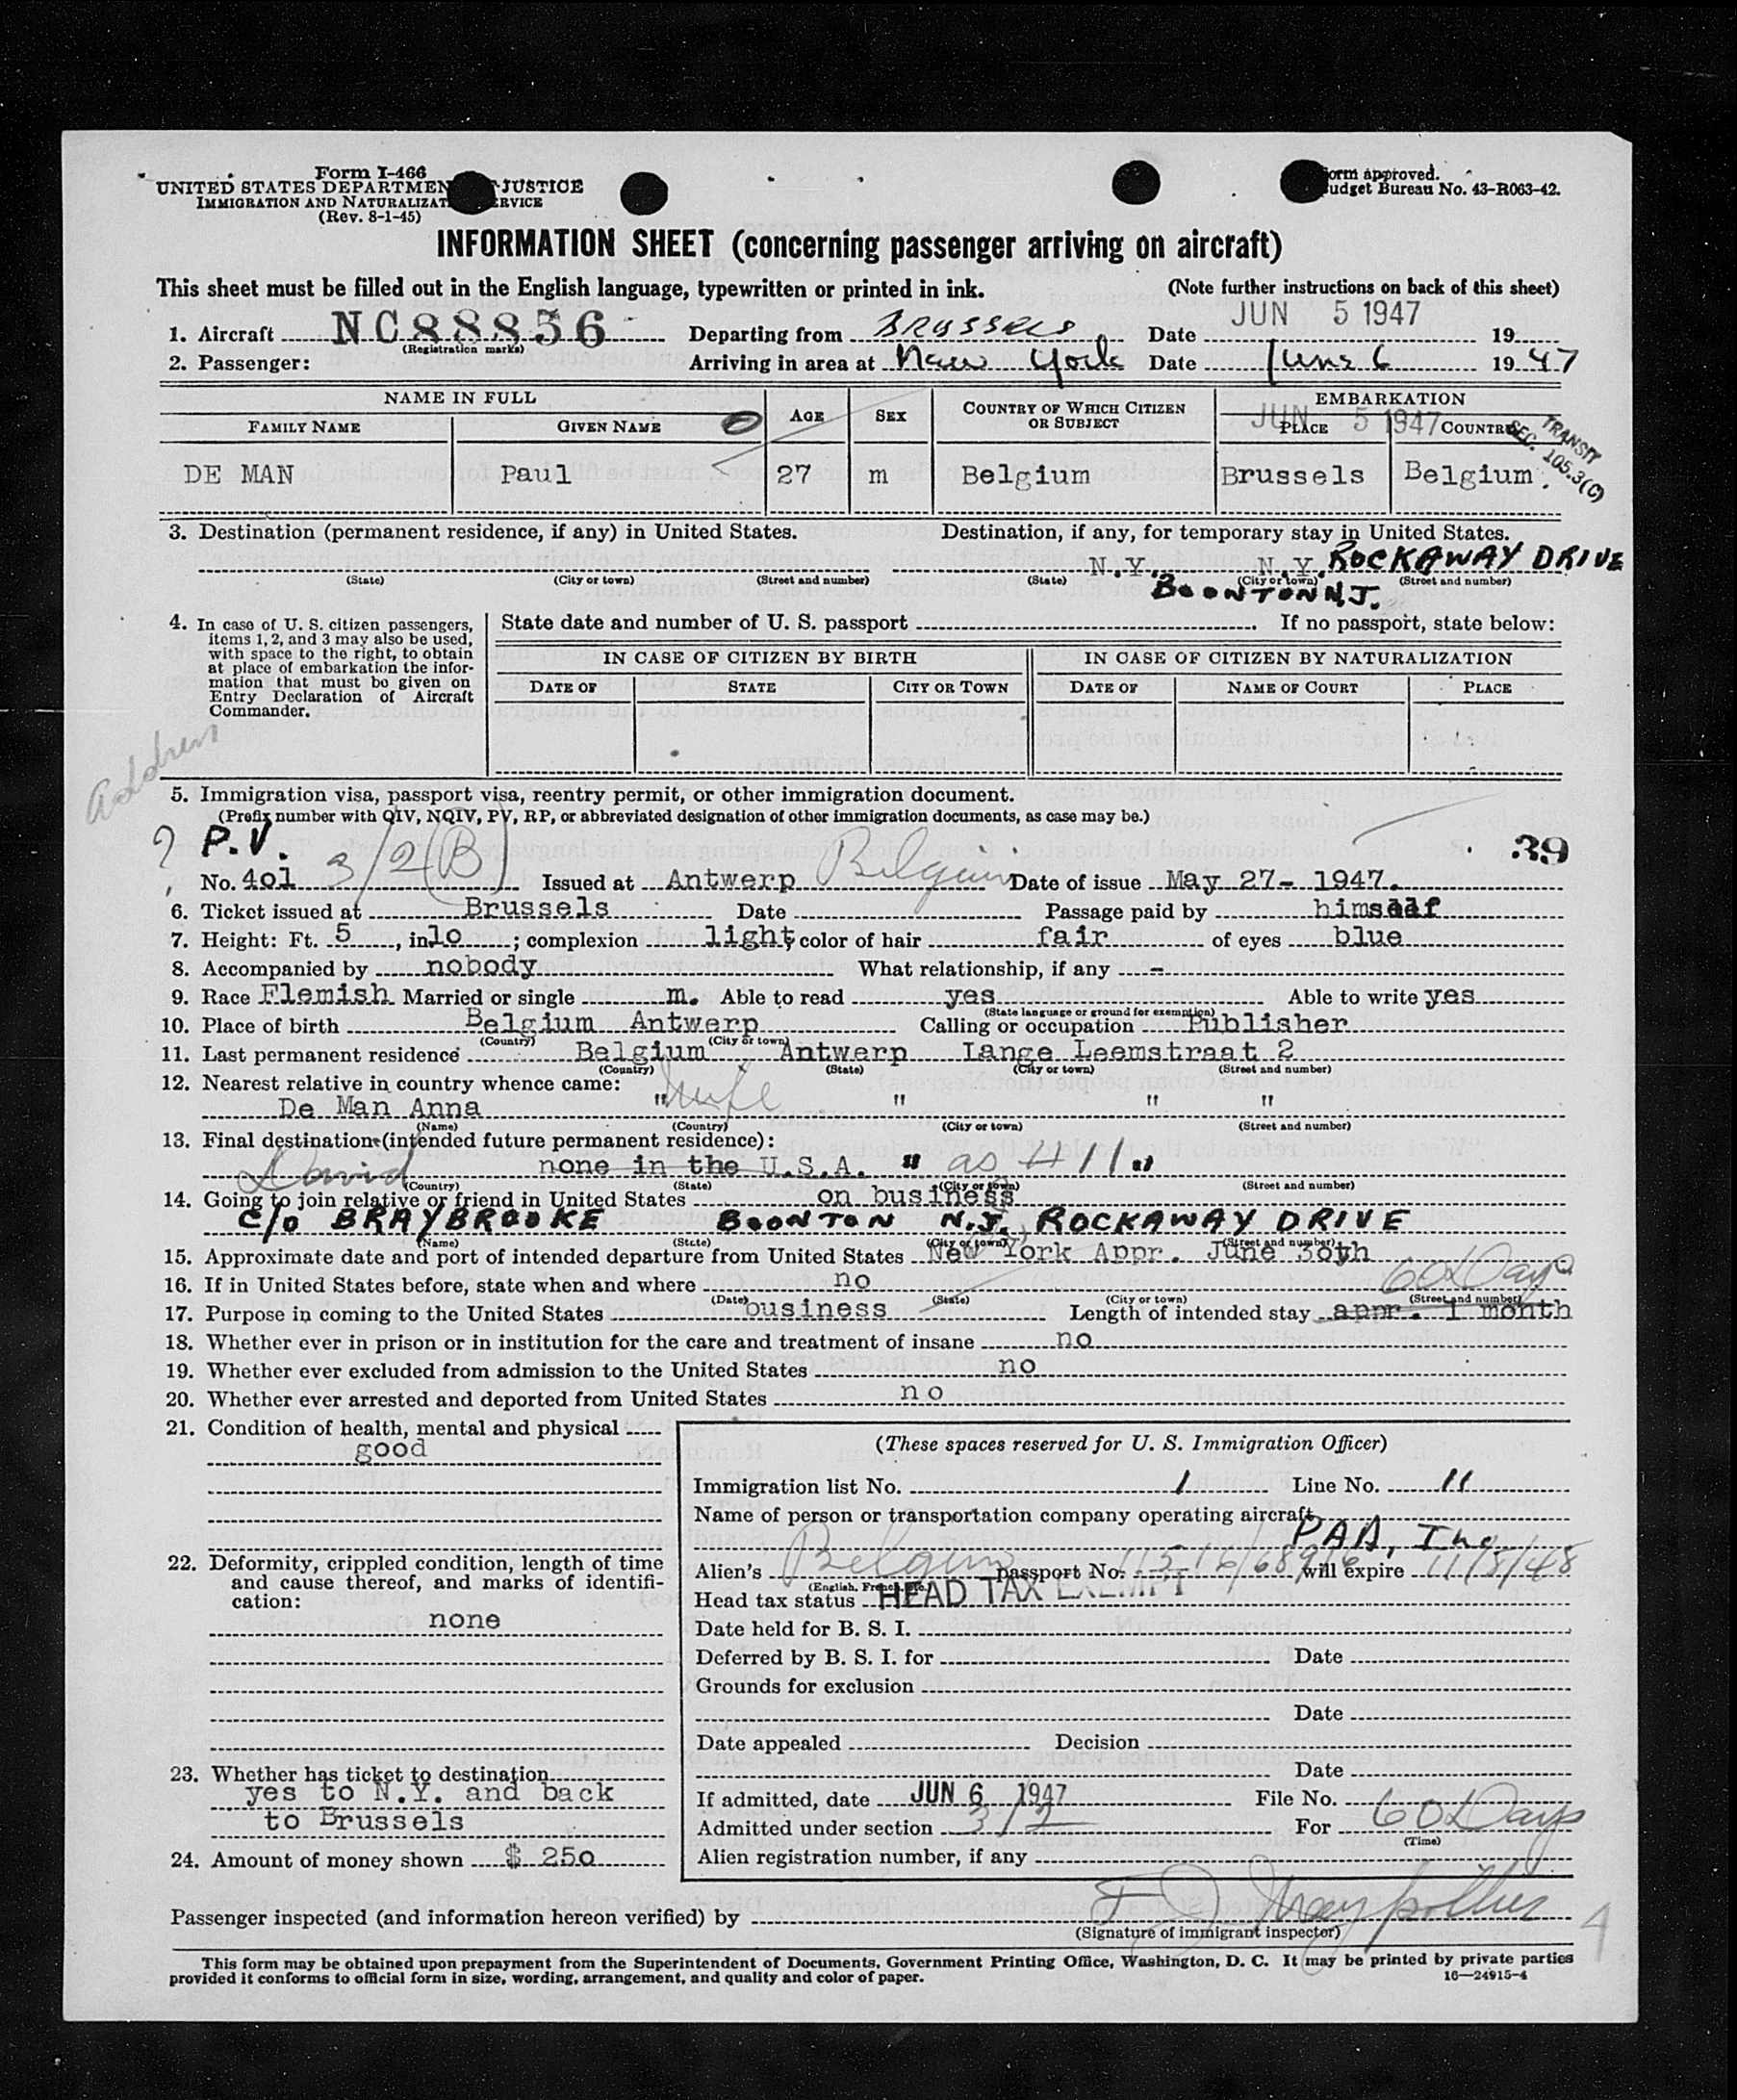 Form I-466
UNITED STATES DEPARTMEN JUSTICE
IMMIGRATION AND NATURALIZAT ERVICE
(Rev. 8-1-45)
orm approved.
udget Bureau No. 43-R063-42.
INFORMATION SHEET (concerning passenger arriving on aircraft)
This sheet must be filled out in the English language, typewritten or printed in ink. (Note further instructions on back of this sheet)
1. Aircraft NC88856 Departing from BRUSSELS Date JUN 5 1947 19
(Registration marks)
2. Passenger: Arriving in area at New York Date June 6 1947
NAME IN FULL AGE SEX COUNTRY OF WHICH CITIZEN OR SUBJECT EMBARKATION
JUN 5 1947
FAMILY NAME GIVEN NAME PLACE COUNTRY
TRANSIT
SEC. 105.3(C)
DE MAN Paul 27 m Belgium Brussels Belgium
3. Destination (permanent residence, if any) in United States. Destination, if any, for temporary stay in United States.
N.Y. N.Y. ROCKAWAY DRIVE
(State) (City or town) (Street and number) (State) (City or town) (Street and number)
BOONTON N.J.
4. In case of U. S. citizen passengers, items 1, 2, and 3 may also be used, with space to the right, to obtain at place of embarkation the information that must be given on Entry Declaration of Aircraft Commander.
State date and number of U. S. passport If no passport, state below:
IN CASE OF CITIZEN BY BIRTH IN CASE OF CITIZEN BY NATURALIZATION
DATE OF STATE CITY OR TOWN DATE OF NAME OF COURT PLACE
Address
5. Immigration visa, passport visa, reentry permit, or other immigration document.
(Prefix number with QIV, NQIV, PV, RP, or abbreviated designation of other immigration documents, as case may be.)
? P.V. 39
No. 401 3/2(B) Issued at Antwerp Belgium Date of issue May 27- 1947.
6. Ticket issued at Brussels Date Passage paid by himself
7. Height: Ft. 5, in. 10; complexion light; color of hair fair of eyes blue
8. Accompanied by nobody What relationship, if any -
9. Race Flemish Married or single m. Able to read yes Able to write yes
(State language or ground for exemption)
10. Place of birth Belgium Antwerp Calling or occupation Publisher
(Country) (City or town)
11. Last permanent residence Belgium Antwerp Lange Leemstraat 2
(Country) (State) (City or town) (Street and number)
12. Nearest relative in country whence came:
De Man Anna " wife " " "
(Name) (Country) (City or town) (Street and number)
13. Final destination (intended future permanent residence):
David none in the U.S.A. " as # 11 "
(Country) (State) (City or town) (Street and number)
14. Going to join relative or friend in United States on business
C/O BRAYBROOKE BOONTON N.J. ROCKAWAY DRIVE
(Name) (State) (City or town) (Street and number)
15. Approximate date and port of intended departure from United States New York Appr. June 30th
16. If in United States before, state when and where no 60 Days
(Date) (State) (City or town) (Street and number)
17. Purpose in coming to the United States business Length of intended stay appr. 1 month
18. Whether ever in prison or in institution for the care and treatment of insane no
19. Whether ever excluded from admission to the United States no
20. Whether ever arrested and deported from United States no
21. Condition of health, mental and physical
good
22. Deformity, crippled condition, length of time and cause thereof, and marks of identification:
none
23. Whether has ticket to destination
yes to N.Y. and back
to Brussels
24. Amount of money shown $ 250
(These spaces reserved for U. S. Immigration Officer)
Immigration list No. 1 Line No. 11
Name of person or transportation company operating aircraft
PAA, Inc
Alien's Belgian passport No. will expire 11/5/48
(English, French, etc.)
Head tax status HEAD TAX EXEMPT
Date held for B. S. I.
Deferred by B. S. I. for Date
Grounds for exclusion
Date
Date appealed Decision
Date
If admitted, date JUN 6 1947 File No.
Admitted under section 3/2 For 60 Days
(Time)
Alien registration number, if any
Passenger inspected (and information hereon verified) by
(Signature of immigrant inspector)
4
This form may be obtained upon prepayment from the Superintendent of Documents, Government Printing Office, Washington, D. C. It may be printed by private parties
provided it conforms to official form in size, wording, arrangement, and quality and color of paper. 16—24915-4